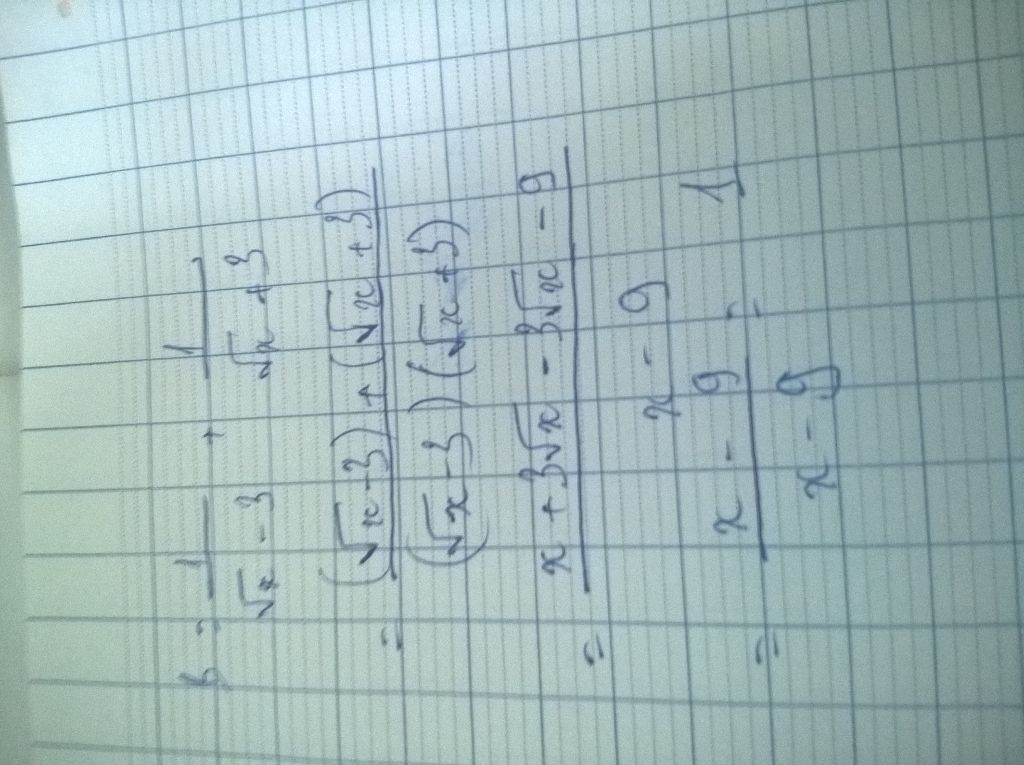 B = 1/(√x - 3) + 1/(√x + 3)
= ((√x - 3) + (√x + 3))/((√x - 3)(√x + 3))
= (x + 3√x - 3√x - 9)/(x - 9)
= (x - 9)/(x - 9) = 1